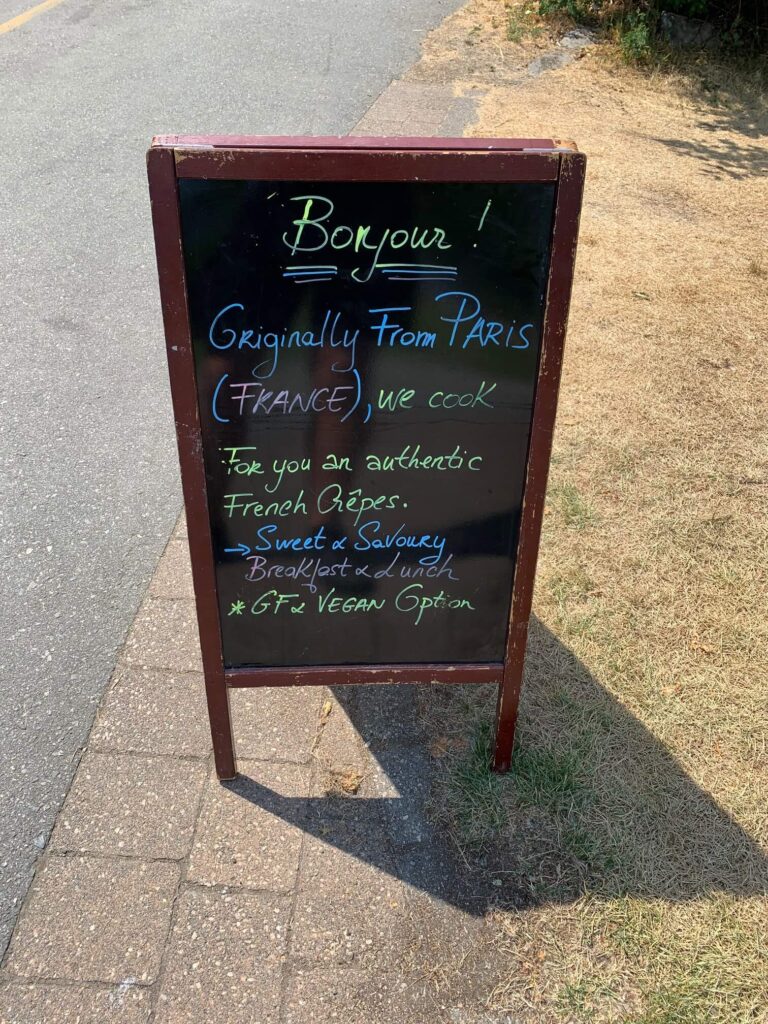 Bonjour !
Originally From PARIS
(FRANCE), we cook
For you an authentic
French Crêpes.
→ Sweet & Savoury
Breakfast & Lunch
* GF & VEGAN Option